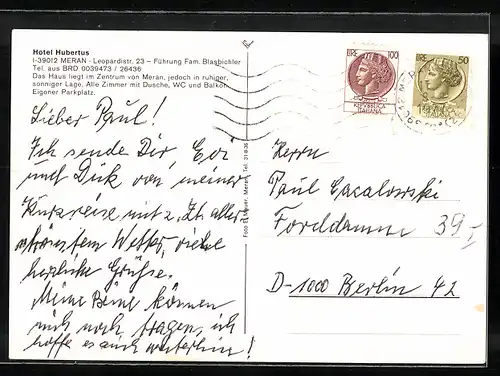 Hotel Hubertus
I-39012 MERAN - Leopardistr. 23 – Führung Fam. Blasbichler
Tel. aus BRD 0039473 / 26436
Das Haus liegt im Zentrum von Meran, jedoch in ruhiger,
sonniger Lage. Alle Zimmer mit Dusche, WC und Balkon.
Eigener Parkplatz.
LIRE 100
REPVBBLICA
ITALIANA
LIRE 50
Lieber Paul!
Ich sende Dir,
und Dick von meiner
Kurzreise mit z. Zt. aller
schönstem Wetter, viele
herzliche Grüße.
Meine Beine können
mich noch tragen, ich
hoffe es auch weiterhin!
Meran, Tel. 31-8-36
Herrn
Paul
39
D-1000 Berlin 42